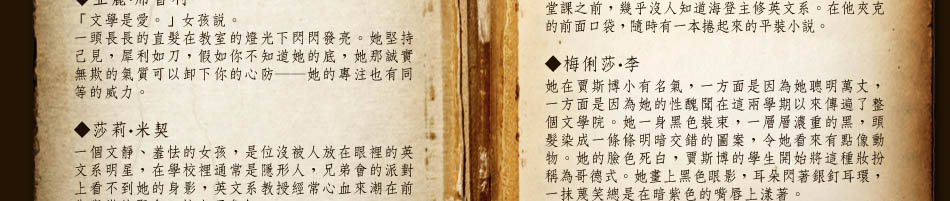 「文學是愛。」女孩說。
一頭長長的直髮在教室的燈光下閃閃發亮。她堅持
己見，犀利如刀，假如你不知道她的底，她那誠實
無欺的氣質可以卸下你的心防──她的專注也有同
等的威力。
◆莎莉·米契
一個文靜、羞怯的女孩，是位沒被人放在眼裡的英
文系明星，在學校裡通常是隱形人，兄弟會的派對
上看不到她的身影，英文系教授經常心血來潮在前
堂課之前，幾乎沒人知道海登主修英文系。在他夾克
的前面口袋，隨時有一本捲起來的平裝小說。
◆梅俐莎·李
她在賈斯博小有名氣，一方面是因為她聰明萬丈，
一方面是因為她的性醜聞在這兩學期以來傳遍了整
個文學院。她一身黑色裝束，一層層濃重的黑，頭
髮染成一條條明暗交錯的圖案，令她看來有點像動
物。她的臉色死白，賈斯博的學生開始將這種妝扮
稱為哥德式。她畫上黑色眼影，耳朵閃著銀釘耳環，
一抹蔑笑總是在暗紫色的嘴唇上漾著。